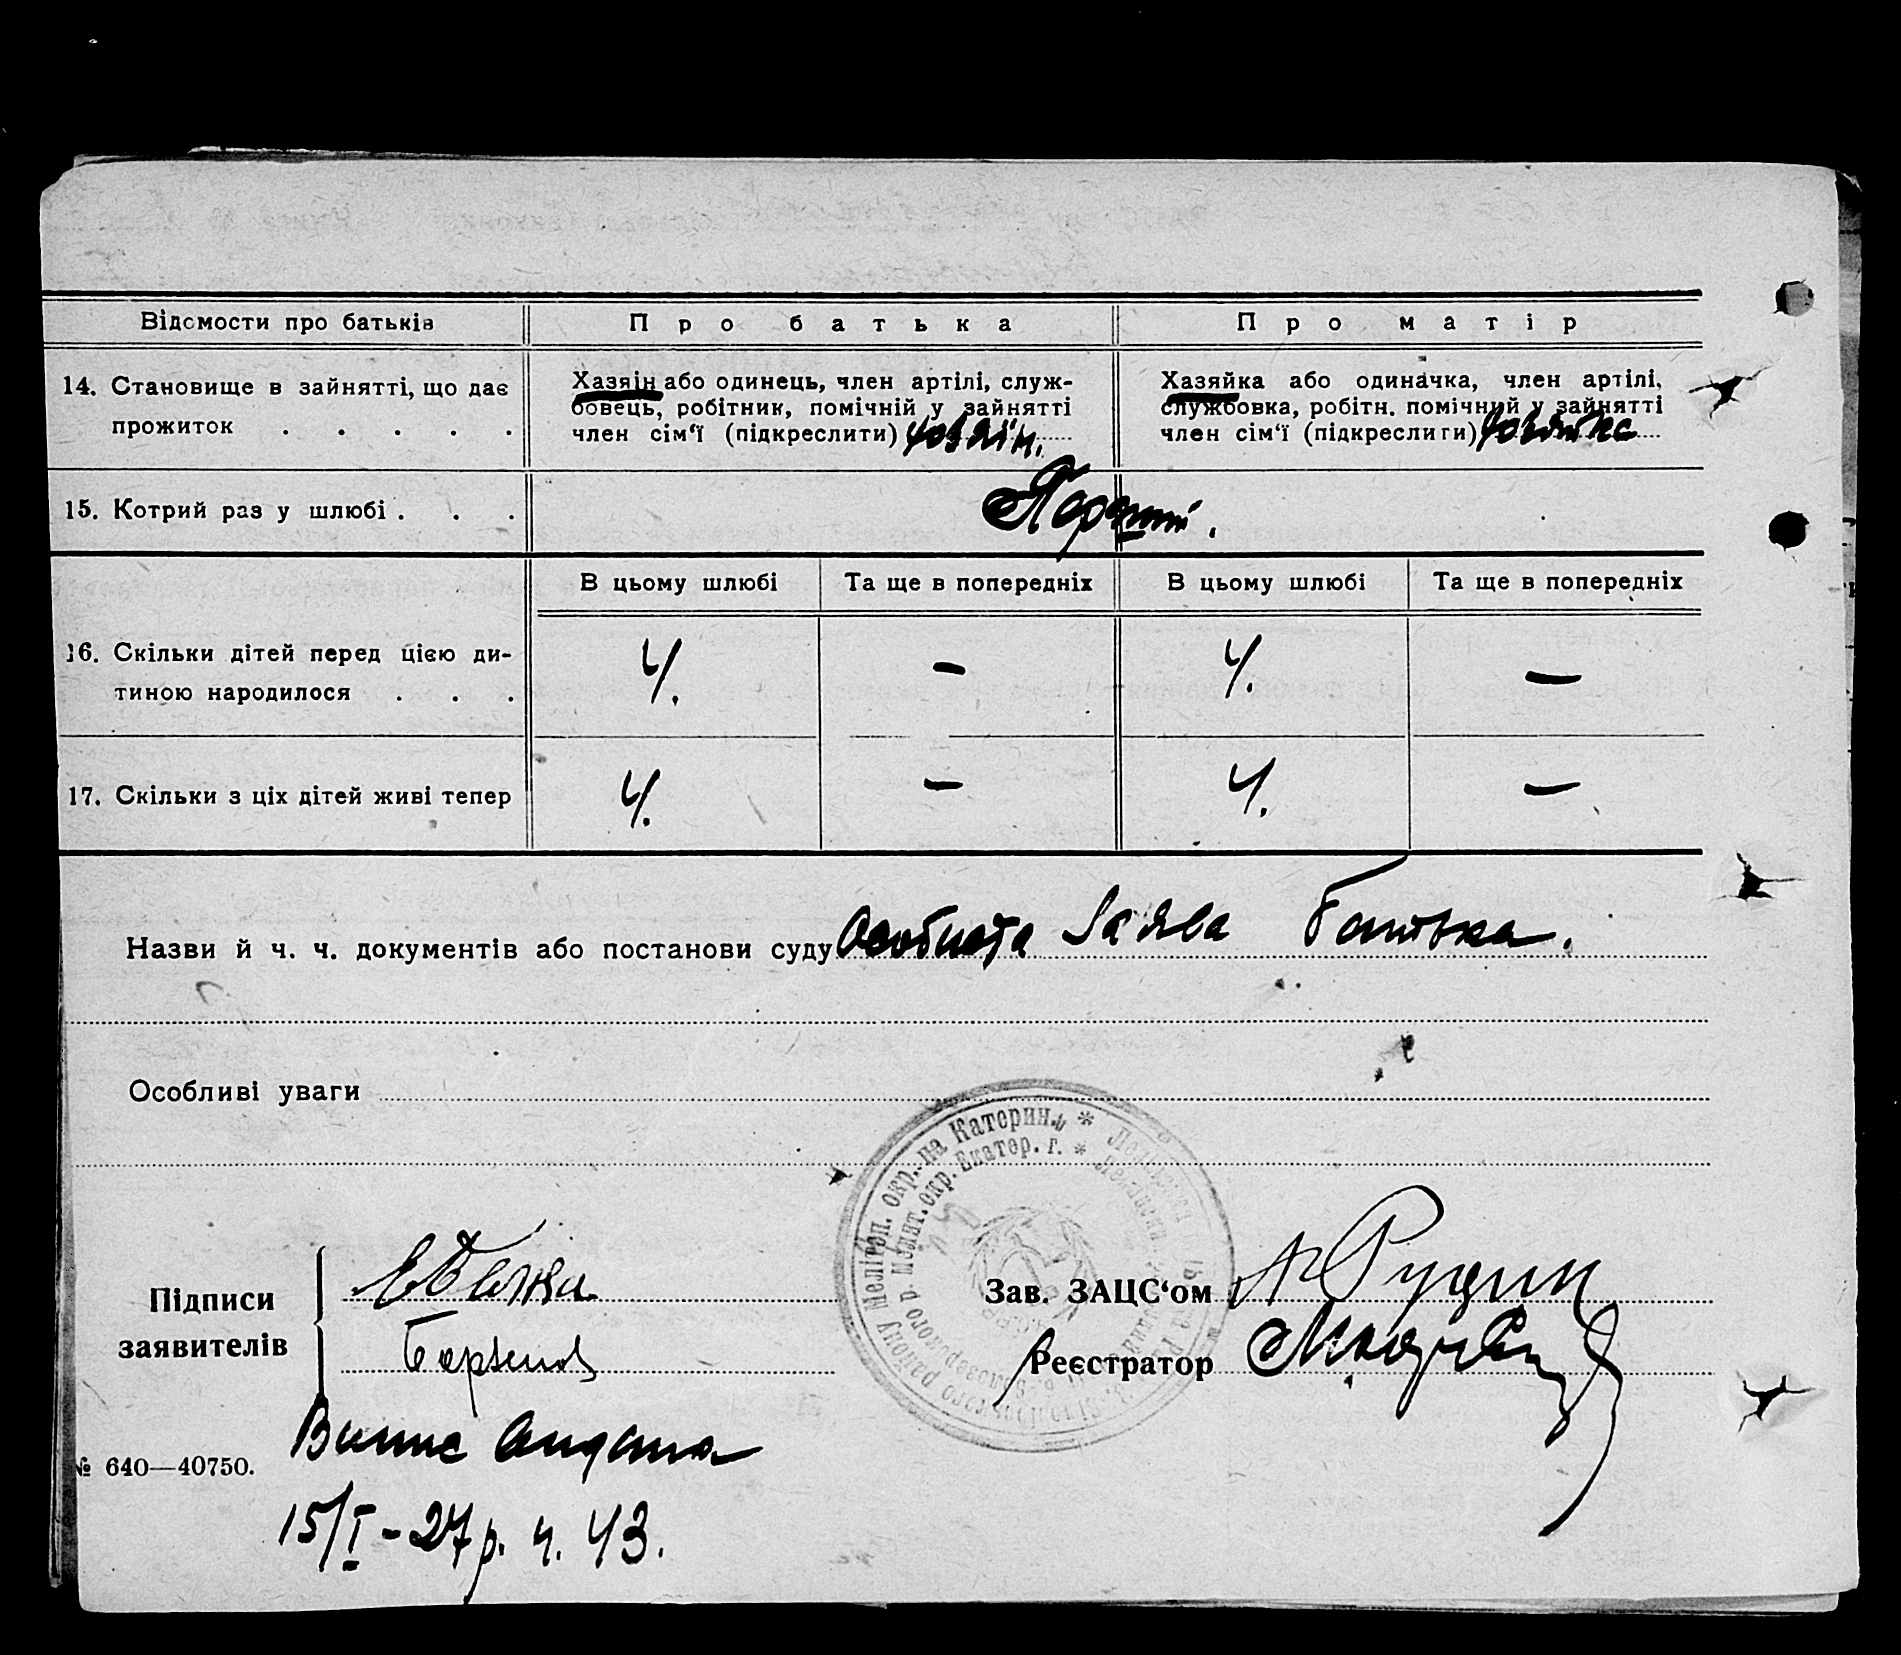 Відомости про батьків
Про батька
Про матір
14. Становище в зайнятті, що дає
прожиток . . . . .
Хазяін або одинець, член артілі, служ-
бовець, робітник, помічній у зайнятті
член сім'ї (підкреслити) хозяїн.
Хазяйка або одиначка, член артілі,
службовка, робітн. помічний у зайнятті
член сім'ї (підкреслиги) хозяйка
15. Котрий раз у шлюбі . . .
В цьому шлюбі
Та ще в попередніх
В цьому шлюбі
Та ще в попередніх
16. Скільки дітей перед цією ди-
тиною народилося . . .
4.
—
4.
—
17. Скільки з ціх дітей живі тепер
4.
—
4.
—
Назви й ч. ч. документів або постанови суду Особиста Заява батька.
Особливі уваги
Мелітоп. окр. на Катерин.
Меліт. окр. Екатер. г.
Підписи
заявителів
Зав. ЗАЦС‘ом
Реєстратор
№ 640—40750.
15/I - 27 р. ч. 43.